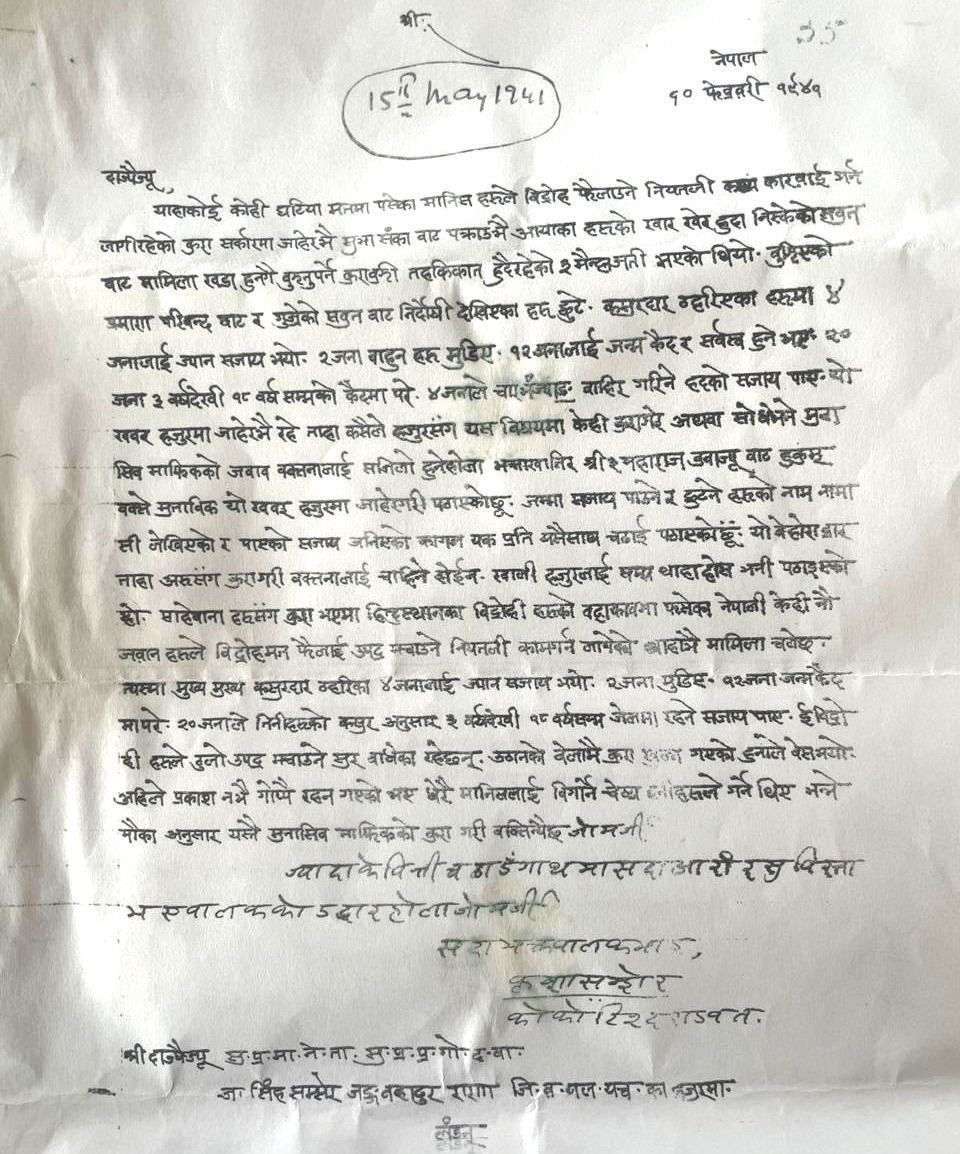 श्रीः
35
15th May 1941
नेपाल
१० फेब्रुवरी १९४१
दाज्यैज्यू,
याहाकोई कोही घटिया मनमा पसेका मानिस हरूले विद्रोह फैलाउने नियतली कारवाई गर्न
लागीरहेको कुरा सर्कारमा जाहेरभै सुभा संका वाट पक्राउभै आयाका हरूको खार खेर हुदा निस्केको सवुत
वाट मामिला खडा हुनगै वुझ्नुपर्ने कुरावुझी तहकिकात् हुँदैरहेको ३ मैन्हाजती भएको थियो. वुझिएको
प्रमाण परिवन्द वाट र गुज्रेको सवुत वाट निर्दोषी देखिएका हरू छुटे. कसुरदार ठहरिएका हरूमा ४
जनालाई ज्यान सजाय भयो. २ जना वाहुन हरू मुडिए. १२ जनालाई जन्म कैद र सर्वस्व हुने भए. २०
जना ३ वर्षदेखी १८ वर्ष सम्मको कैदमा परे. ४ जनाले चारभंज्याङ वाहिर गरिने हदको सजाय पाए. यो
खवर हजुरमा जाहेरभै रहे ताहा कसैले हजुरसंग यस विषयमा केही कुरागरे अथवा सोधेमने मुना
सिव माफिकको जवाव वक्सनालाई सजिलो हुनेहोला भन्नाखातिर श्री ३ महाराज ठुवाज्यू वाट हुकुम्
वक्से मुताविक यो खवर हजुरमा जाहेरगरी पठाएकोछू. जम्मा सजाय पाउने र छुटने हरूको नाम नामा
सी लेखिएको र पाएको सजाय जनिएको कागज यक प्रति यसैसाथ चढाई पठाएकोछूँ. यो वेहोरा
ताहा अरूसंग कुरागरी वक्सनालाई चाहिने होईन. खाली हजुरलाई सम्म थाहाहोस भनी पठाइएको
हो. साहेवाना हरूसंग कुरा भएमा हिन्दुस्थानका विद्रोही हरूको वहाकावमा फसेका नेपाली केही नौ
जवान हरूले विद्रोहमन फैलाई उपद्र मचाउने नियतली कामगर्न लागेको थाहाभै मामिला चलेछ.
त्यस्मा मुख्य मुख्य कसुरदार ठहरिका ४ जनालाई ज्यान सजाय भयो. २ जना मुडिए. १२ जना जन्मकैद
मापरे. २० जनाले तिनीहरूको कसुर अनुसार ३ वर्षदेखी १८ वर्षसम्म जेलमा रहने सजाय पाए. ई विद्रो
ही हरूले ठुलो उपद्र मचाउने सुर वाधेका रहेछन्. उठानको वेलामै कुरा गएको हुनाले वेसभयो.
अहिले प्रकाश नभै गोप्यै रहन गएको भए धेरै मानिसलाई विगार्ने चेष्टा गर्ने थिए भन्ने
मौका अनुसार यस्तै मुनासिव माफिकको कुरा गरी वक्सिन्यैछ जो मर्जी
ज्यादा के वित्ती चढाउंगाथमा सदा आशीर सु विस्ता
भएवालकको उद्दार होला जो मर्जी
सदा भक्त वालक भाइ,
कृष्णसम्शेर
को कोटि २ दण्डवत.
श्री दाज्यैज्यू सु. प्र. मा. ने. ता. सु. प्र. प्र. गो. द. वा.
ज. सिंह सम्सेर जङ्ग वहादुर राणा जि. व. जल. यच. का हजुरमा.
लंडन्